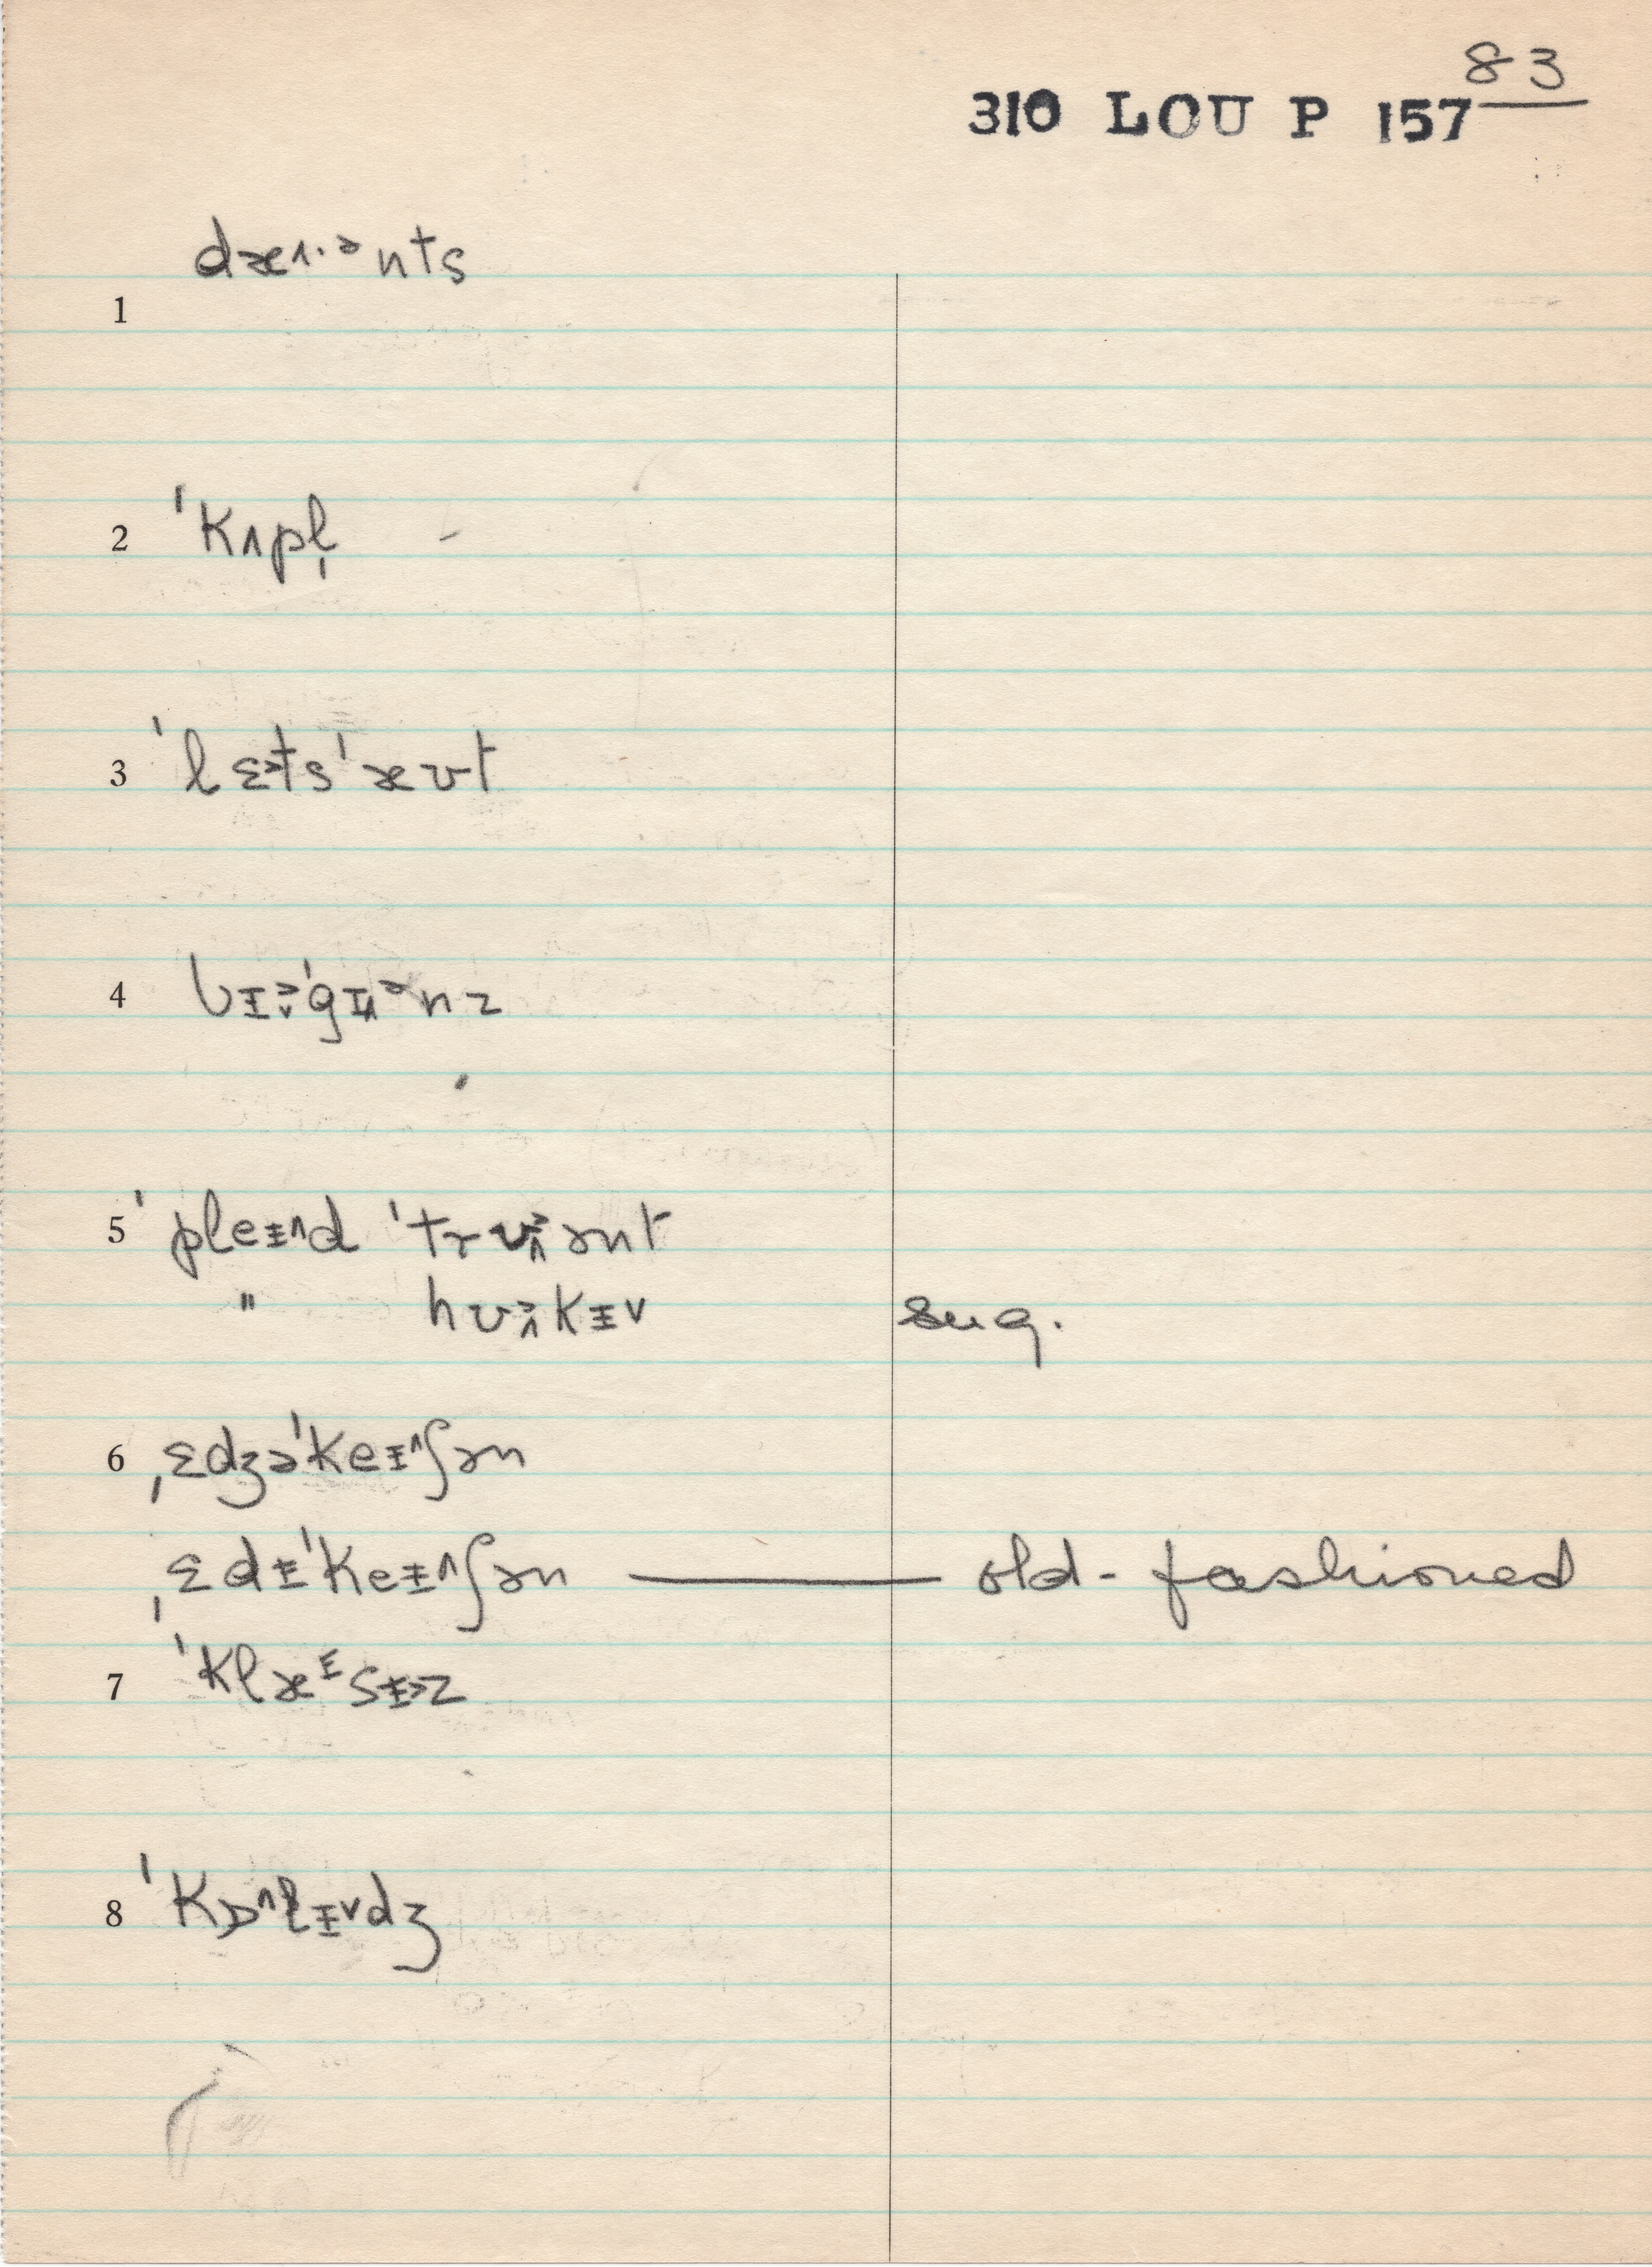 83
310 LOU P 157
dæ˄·ᵊnts
1
2 ˈkʌpl̩
3 ˈlɛ˃tsˈæʊt
4 bɪ˃˅ˈgɪ˄ᵊnz
5 ˈpleɪ˄d ˈtrʊ˃˄ənt
" hʊ˃˄kɪ˅ sug.
6 ˌɛdʒəˈkeɪ˄ʃən
ˌɛdɨˈkeɪ˄ʃən — old-fashioned
7 ˈklæᴵsɨ˃z
8 ˈkɒ˄lɪ˅dʒ